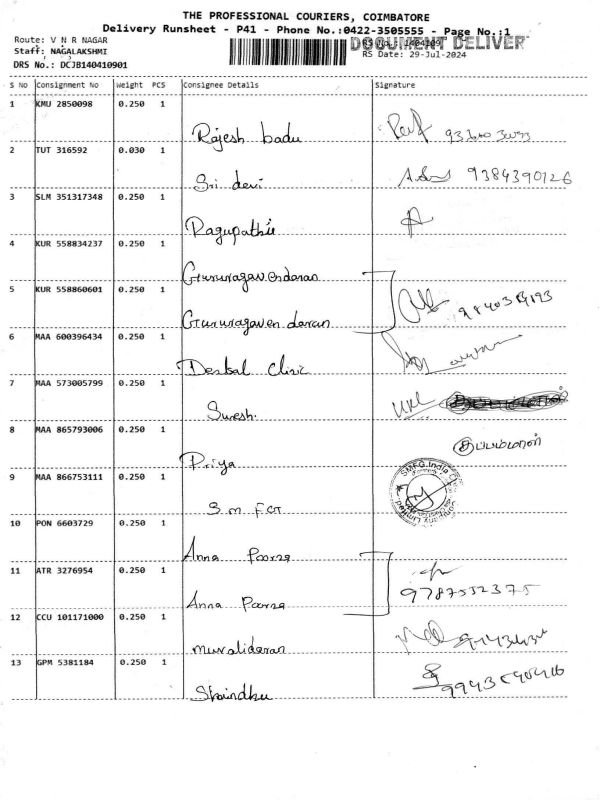 THE PROFESSIONAL COURIERS, COIMBATORE
Delivery Runsheet - P41 - Phone No.:0422-3505555 - Page No.:1
Route: V N R NAGAR
DOCUMENT DELIVER
Staff: NAGALAKSHMI
RS Date: 29-Jul-2024
DRS No.: DCJB140410901
S No Consignment No Weight PCS Consignee Details Signature
1 KMU 2850098 0.250 1
Rajesh badu
2 TUT 316592 0.030 1
Sri devi 9384390126
3 SLM 351317348 0.250 1
Ragupathi
4 KUR 558834237 0.250 1
Gururagavendaran
5 KUR 558860601 0.250 1
Gururagavendaran
6 MAA 600396434 0.250 1
Dental Clinic
7 MAA 573005799 0.250 1
Suresh.
8 MAA 865793006 0.250 1
Priya
9 MAA 866753111 0.250 1
SMFG India
S.M FG
10 PON 6603729 0.250 1
Anna Poorna
11 ATR 3276954 0.250 1
Anna Poorna 9787552375
12 CCU 101171000 0.250 1
muralidaran
13 GPM 5381184 0.250 1